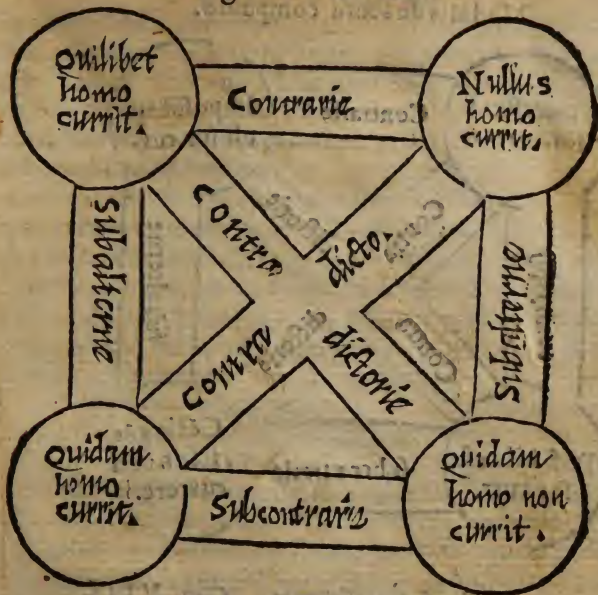 Quilibet
homo
currit.
Contrarie
Nullus
homo
currit.
Subalterne
contra
dicto.
contra
dictorie
Subalterne
Quidam
homo
currit.
Subcontrarie
Quidam
homo non
currit.